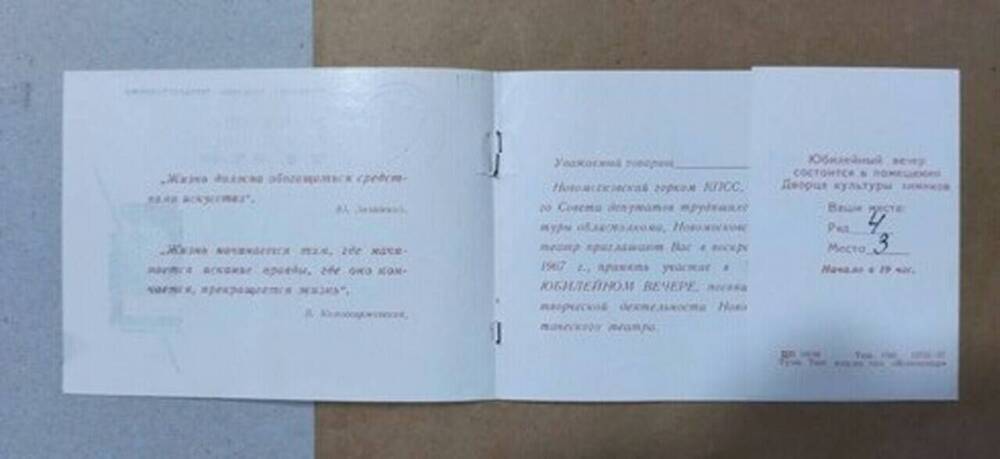 „Жизнь должна обогащаться средст-
вами искусства“.
Ю. Завадский.
„Жизнь начинается там, где начи-
нается искание правды, где оно кон-
чается, прекращается жизнь“.
Уважаемый товарищ
Новомосковский горком КПСС,
го Совета депутатов трудящихс
туры облисполкома, Новомосковс
театр приглашают Вас в воскре
1967 г., принять участие в
ЮБИЛЕЙНОМ ВЕЧЕРЕ, посвящ
творческой деятельности Ново
тического театра.
Юбилейный вечер
состоится в помещении
Дворца культуры химиков
Ваши места:
Ряд 4
Место 3
Начало в 19 час.